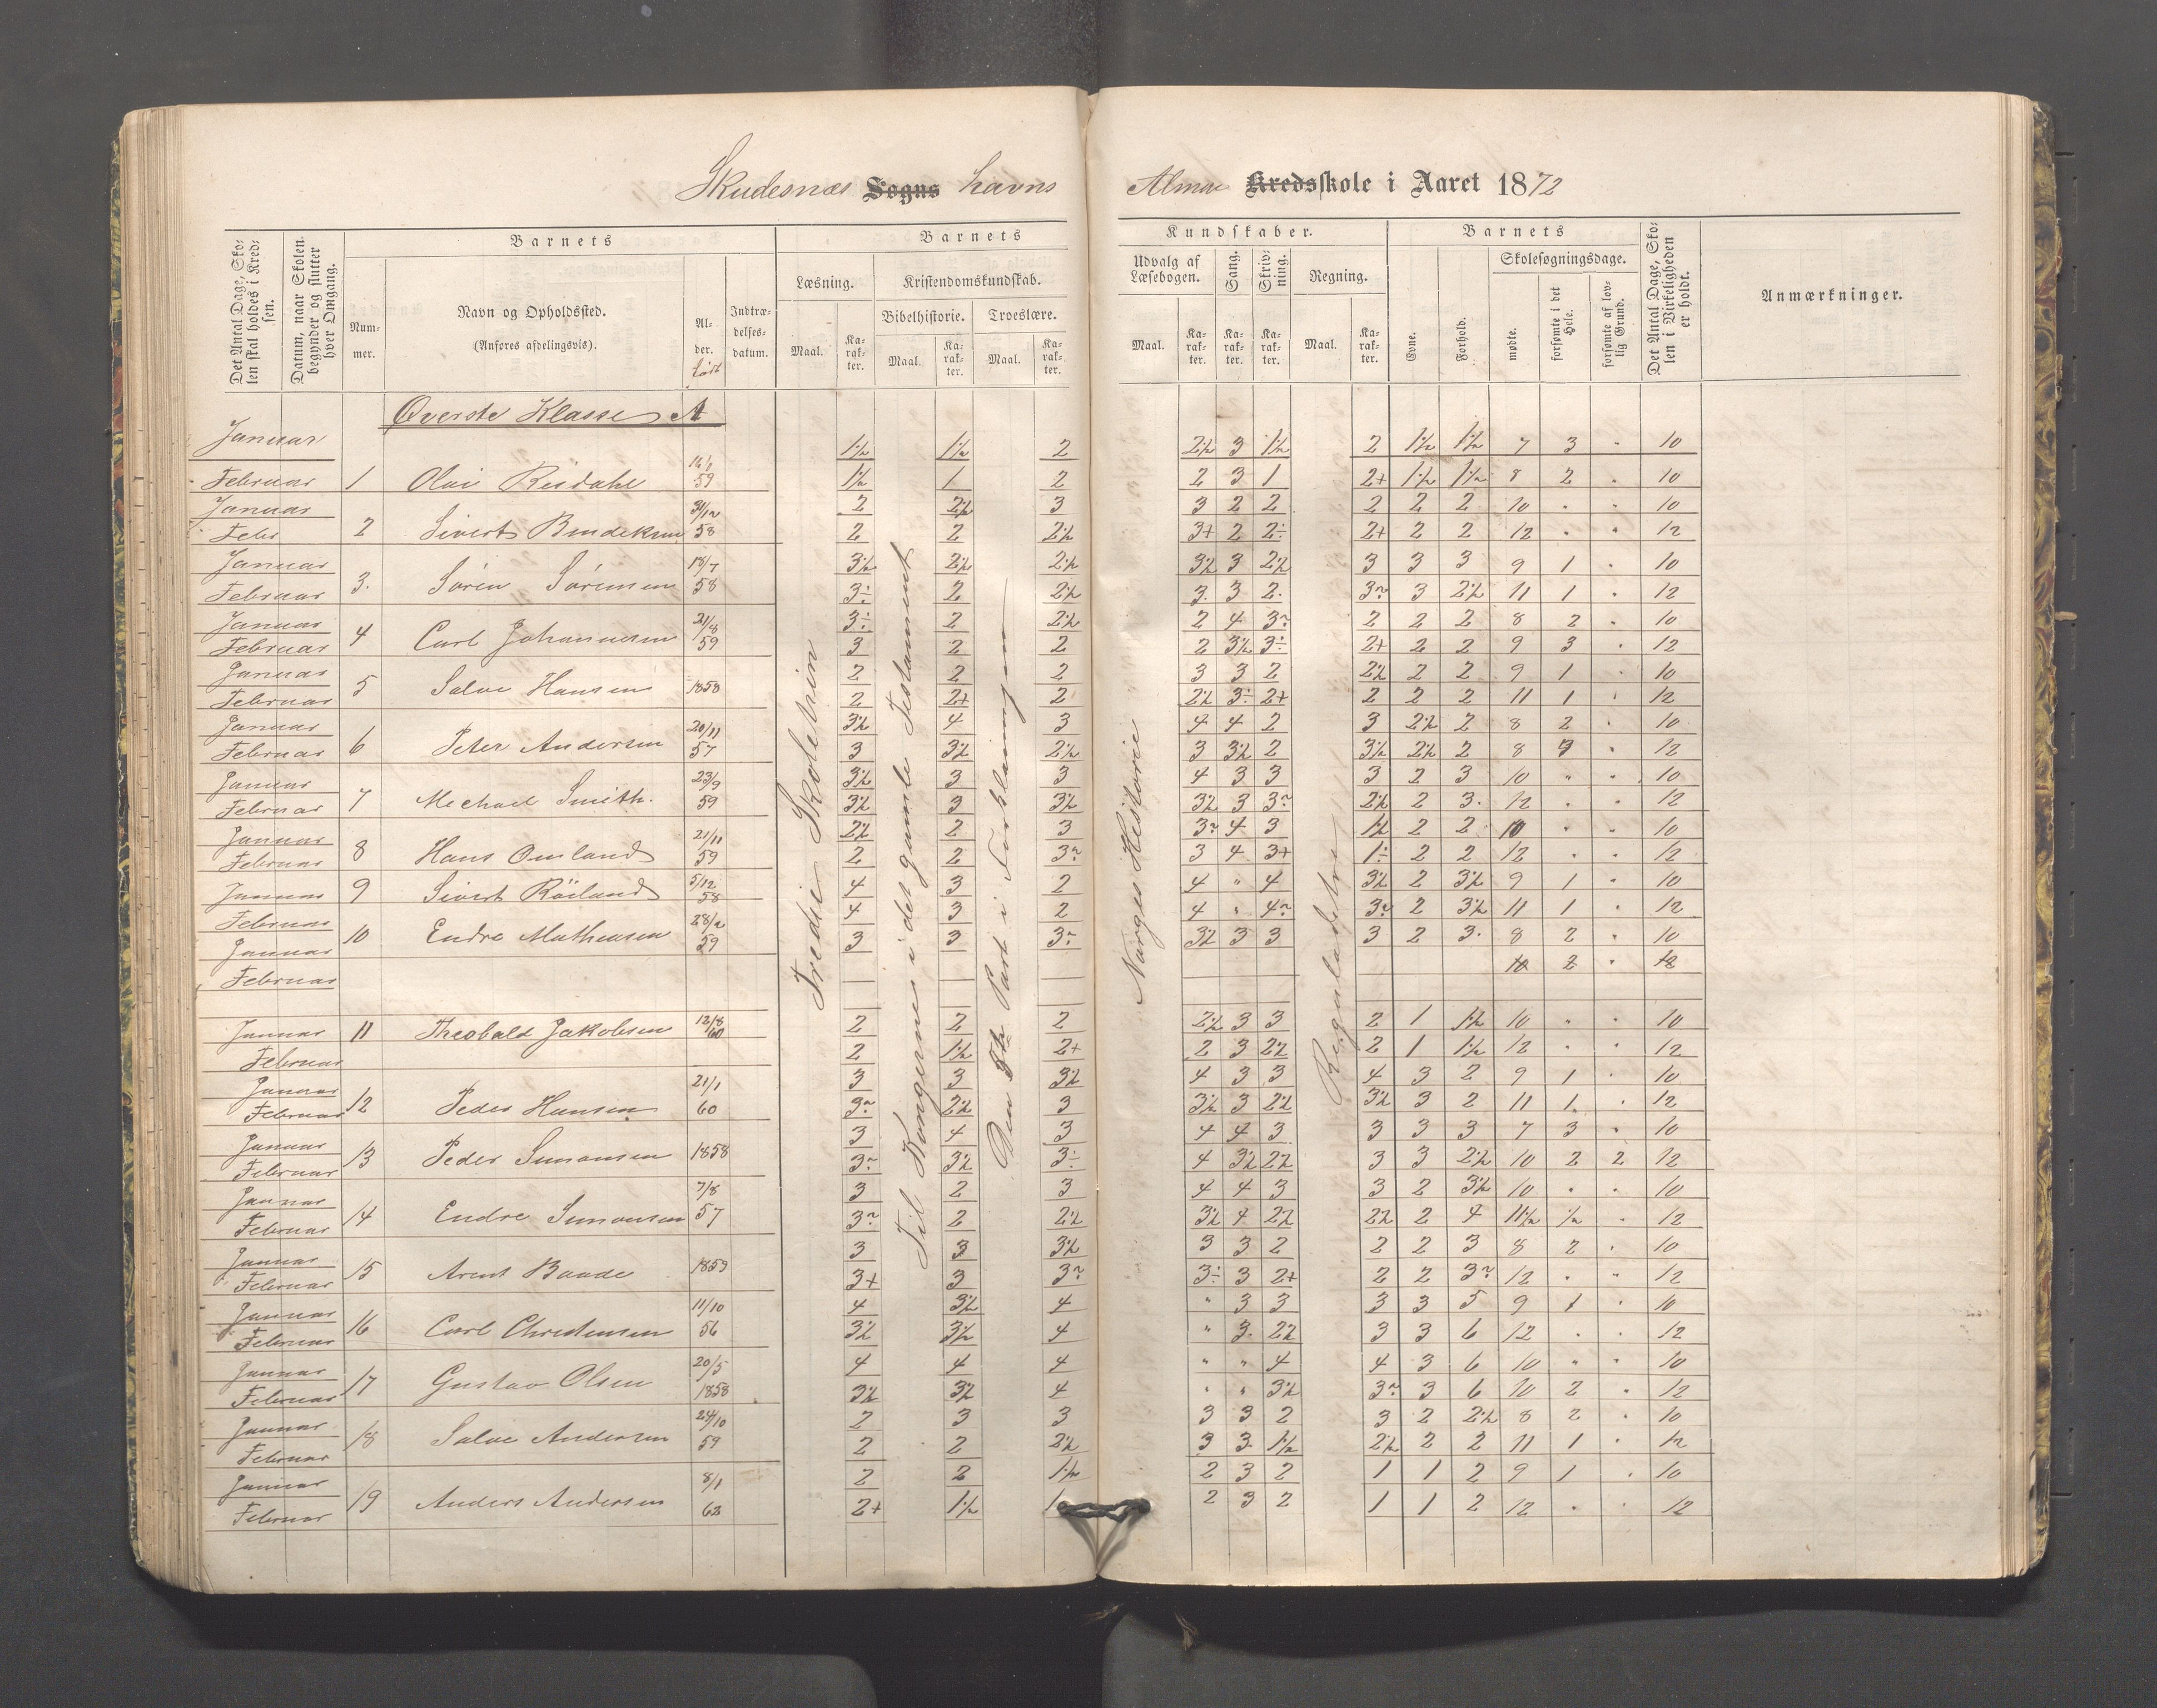 Skudesnæs Sogns havns Almue Kredsskole i Aaret 1872
Det Antal Dage, Skolen skal holdes i Kredsen.
Datum, naar Skolen begynder og slutter hver Omgang.
Barnets
Nummer.
Navn og Opholdssted.
(Anføres afdelingsvis).
Alder.
født
Indtrædelsesdatum.
Barnets Kundskaber.
Læsning.
Kristendomskundskab.
Bibelhistorie.
Troeslære.
Maal. Karakter. Maal. Karakter. Maal. Karakter.
Udvalg af Læsebogen.
Sang.
Skrivning.
Regning.
Maal. Karakter. Karakter. Karakter. Maal. Karakter.
Barnets
Evne.
Forhold.
Skolesøgningsdage.
mødte.
forsømte i det Hele.
forsømte af lovlig Grund.
Det Antal Dage, Skolen i Virkeligheden er holdt.
Anmærkninger.
Øverste Klasse A
Tredie Skoletrin
Til Kongernes i det gamle Testamente
Den 3die Part i Forklaringen
Norges Historie
Reguladetri
Januar 1½ 1½ 2 2½ 3 1½ 2 1½ 1½ 7 3 " 10
Februar 1 Olai Risdahl 16/1 59 1½ 1 2 2 3 1 2+ 1½ 1½ 8 2 " 10
Januar 2 2½ 3 3 2 2 2 2 2 10 " " 10
Febr 2 Sivert Bendiksen 31/12 58 2 2 2½ 3+ 2 2÷ 2+ 2 2 12 " " 12
Januar 3½ 2½ 2½ 3½ 3 2½ 3 3 3 9 1 " 10
Februar 3. Sören Sörensen 18/7 58 3÷ 2 2½ 3 3 2 3~ 3 2½ 11 1 " 12
Januar 3÷ 2 2½ 2 4 3~ 2 2 2 8 2 " 10
Februar 4 Carl Johannesen 21/8 59 3 2 2 2 3½ 3÷ 2+ 2 2 9 3 " 12
Januar 2 2 2 3 3 2 2½ 2 2 9 1 " 10
Februar 5 Salve Hansen 1858 2 2+ 2 2½ 3÷ 2+ 2 2 2 11 1 " 12
Januar 3½ 4 3 4 4 2 3 2½ 2 8 2 " 10
Februar 6 Peter Andersen 20/11 57 3 3½ 2½ 3 3½ 2 3½ 2½ 2 8 " 12
Januar 3½ 3 3 4 3 3 3 2 3 10 " " 10
Februar 7 Michael Smith. 23/9 59 3½ 3 3½ 3½ 3 3~ 2½ 2 3 12 " " 12
Januar 2½ 2 3 3~ 4 3 1½ 2 2 10 " " 10
Februar 8 Hans Omland 21/11 59 2 2 3~ 3 4 3+ 1÷ 2 2 12 " " 12
Januar 9 Sivert Röiland 5/12 58 4 3 2 4 " 4 3½ 2 3½ 9 1 " 10
Februar 4 3 2 4 " 4~ 3~ 2 3½ 11 1 " 12
Januar 10 Endre Matheasen 28/2 59 3 3 3~ 3½ 3 3 3 2 3 8 2 " 10
Februar 10 2 " 12
Januar 11 Theobald Jakobsen 12/8 60 2 2 2 2½ 3 3 2 1 1½ 10 " " 10
Februar 2 1½ 2+ 2 3 2½ 2 1 1½ 12 " " 12
Januar 3 3 3½ 4 3 3 4 3 2 9 1 " 10
Februar 12 Peder Hansen 21/1 60 3~ 2½ 3 3½ 3 2½ 3½ 3 2 11 1 " 12
Januar 3 4 3 4 4 3 3 3 3 7 3 " 10
Februar 13 Peder Simonsen 1858 3~ 3½ 3÷ 4 3½ 2½ 3 3 2½ 10 2 2 12
Januar 3 2 3 4 4 3 3 2 3½ 10 " " 10
Februar 14 Endre Simonsen 7/8 57 3~ 2 2½ 3½ 4 2½ 2½ 2 4 11½ ½ " 12
Januar 3 3 3½ 3 3 2 2 2 3 8 2 " 10
Februar 15 Arent Baade 1859 3+ 3 3~ 3÷ 3 2+ 2 2 3~ 12 " " 12
Januar 4 3½ 4 " 3 3 3 3 5 9 1 " 10
Februar 16 Carl Christensen 11/10 56 3½ 3½ 4 " 3 2½ 3 3 6 12 " " 12
Januar 4 4 4 " " 4 4 3 6 10 " " 10
Februar 17 Gustav Olsen 20/5 1858 3½ 3½ 4 " " 3½ 3~ 3 6 10 2 " 12
Januar 2 3 3 3 3 2 3 2 2½ 8 2 " 10
Februar 18 Salve Andersen 24/10 59 2 2 2½ 3 3 1½ 2½ 2 2 11 1 " 12
Januar 2 2 1½ 2 3 2 1 1 2 9 1 " 10
Februar 19 Anders Andersen 8/1 62 2+ 1½ 1 2 3 2 1 1 2 12 " " 12